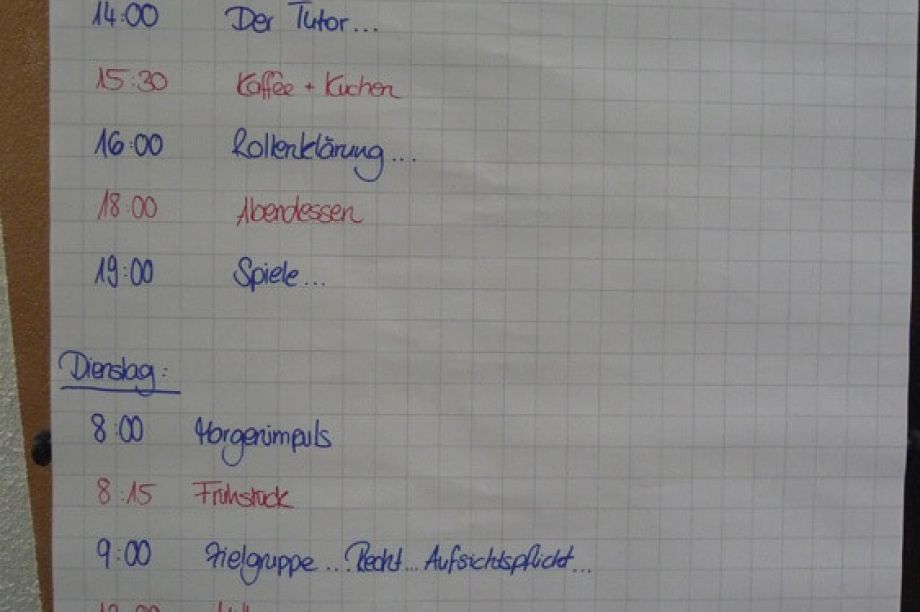 14:00 Der Tutor...
15:30 Kaffee + Kuchen
16:00 Rollenklärung...
18:00 Abendessen
19:00 Spiele...
Dienstag:
8:00 Morgenimpuls
8:15 Frühstück
9:00 Zielgruppe...Recht...Aufsichtspflicht...